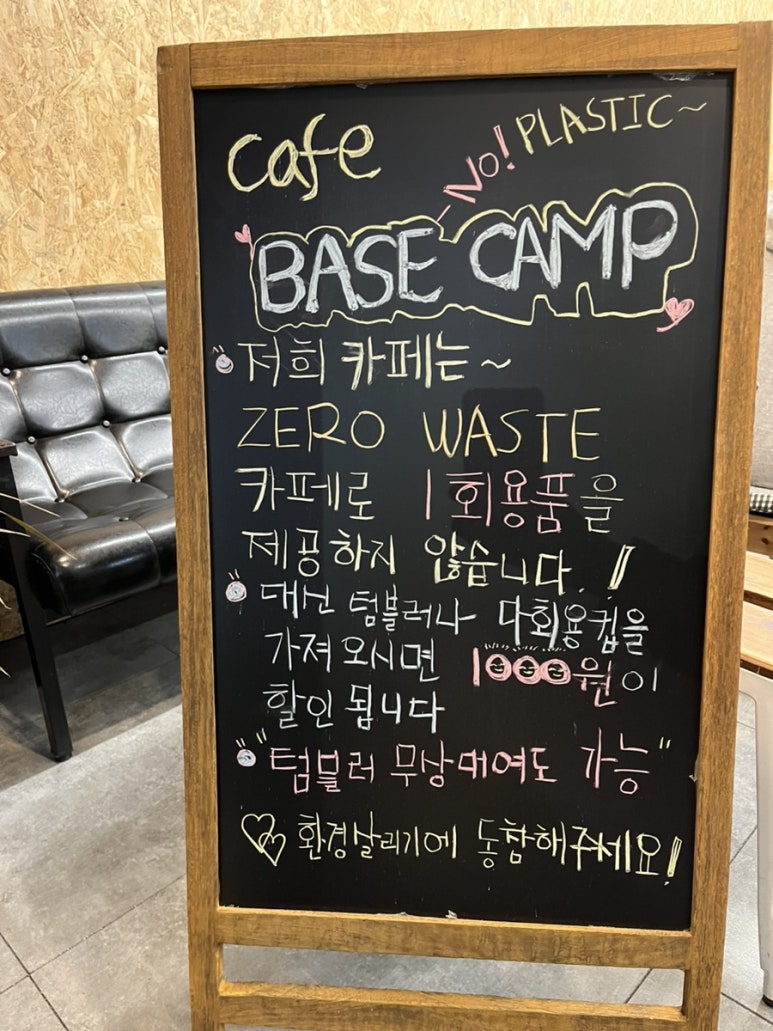 cafe
NO! PLASTIC~
BASE CAMP
저희 카페는~
ZERO WASTE
카페로 1회용품을
제공하지 않습니다.!
대신 텀블러나 다회용컵을
가져오시면 1000원이
할인 됩니다
"텀블러 무상대여도 가능"
환경살리기에 동참해주세요!